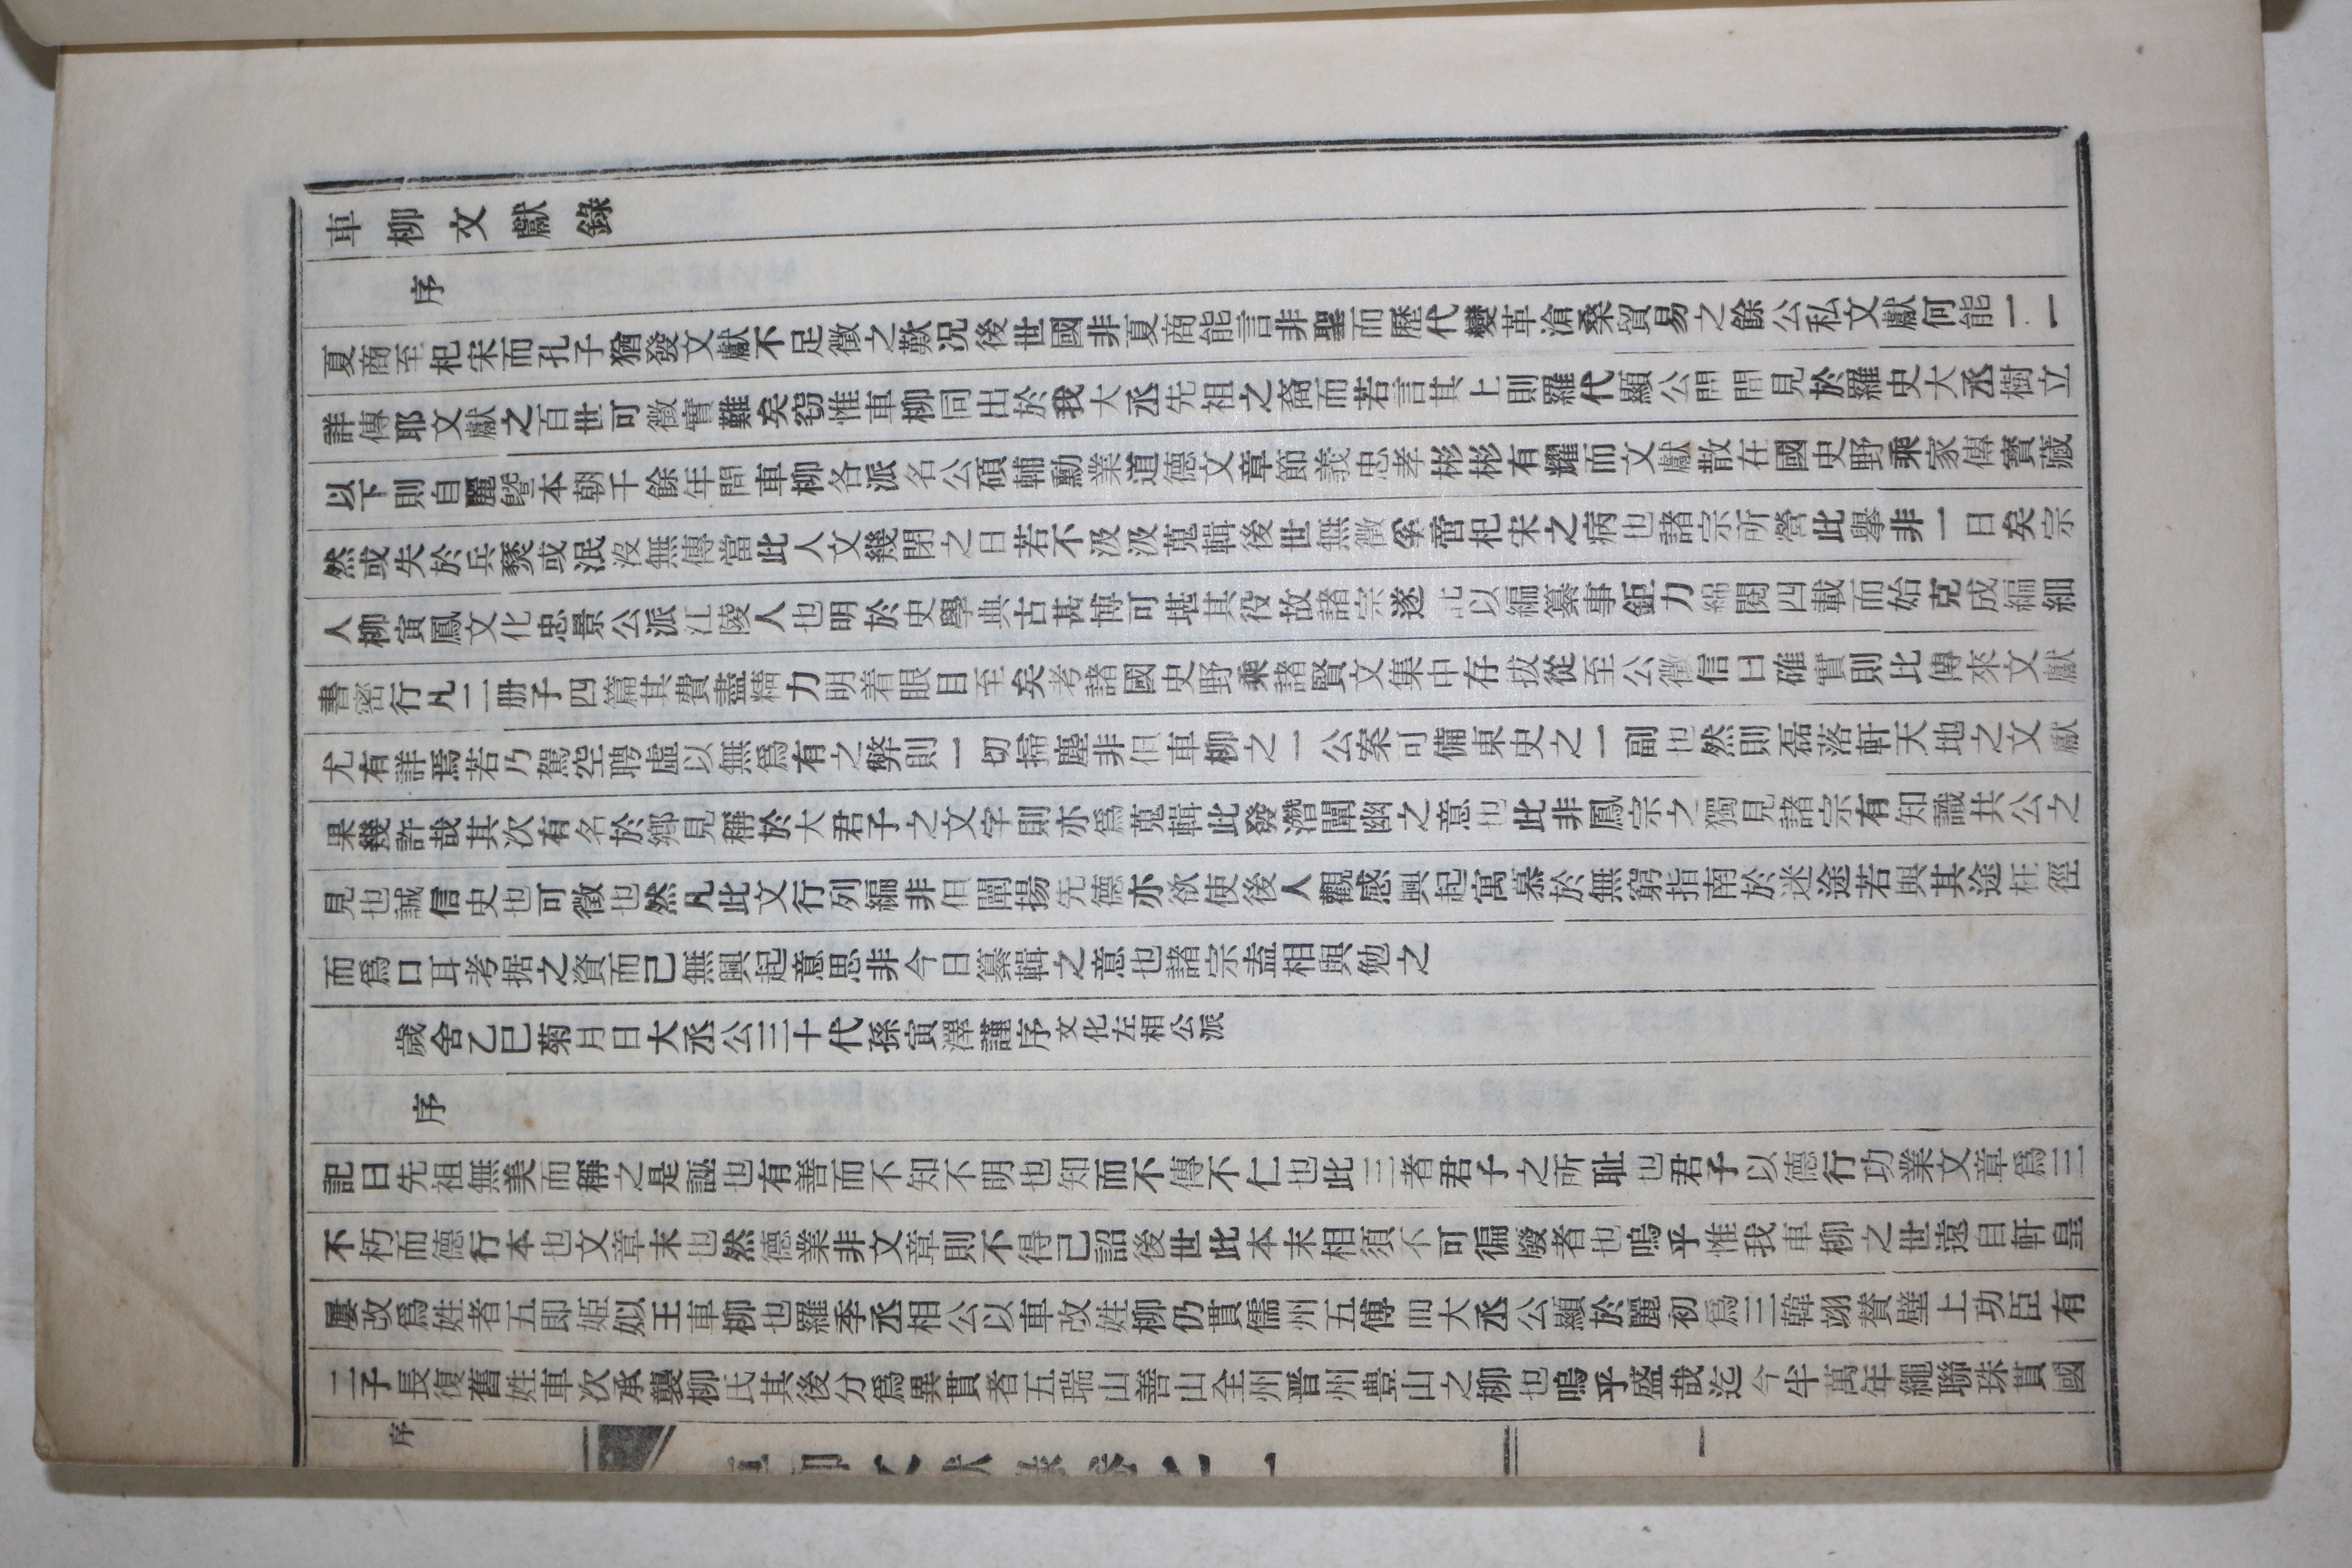 車柳文獻錄
序
夏商至杞宋而孔子猶發文獻不足徵之歎況後世國非夏商能言非聖而歷代變革滄桑貿易之餘公私文獻何能一一
詳傳耶文獻之百世可徵實難矣窃惟車柳同出於我大丞先祖之裔而若言其上則羅代顯公間間見於羅史大丞樹立
以下則自麗曁本朝千餘年間車柳各派名公碩輔勳業道德文章節義忠孝彬彬有耀而文獻散在國史野乘家傳寶藏
然或失於兵燹或泯沒無傳當此人文幾閉之日若不汲汲蒐輯後世無徵奚啻杞宋之病也諸宗所營此擧非一日矣宗
人柳寅鳳文化忠景公派江陵人也明於史學典古甚博可堪其役故諸宗遂託以編纂事鉅力綿閱四載而始克成編細
書密行凡二册子四篇其費盡精力明着眼目至矣考諸國史野乘諸賢文集中存拔從至公徵信日確實則比傳來文獻
尤有詳焉若乃駕空聘虛以無爲有之弊則一切掃塵非但車柳之一公案可備東史之一副也然則磊落軒天地之文獻
果幾許哉其次有名於鄕見稱於大君子之文字則亦爲蒐輯此發潛闡幽之意也此非鳳宗之獨見諸宗有知識共公之
見也誠信史也可徵也然凡此文行列編非但闡揚先德亦欲使後人觀感興起寓慕於無窮指南於迷途若與其途枉徑
而爲口耳考据之資而已無興起意思非今日纂輯之意也諸宗盍相與勉之
歲舍乙巳菊月日大丞公三十代孫寅澤謹序 文化左相公派
序
記曰先祖無美而稱之是誣也有善而不知不明也知而不傳不仁也此三者君子之所耻也君子以德行功業文章爲三
不朽而德行本也文章末也然德業非文章則不得已詔後世此本末相須不可徧廢者也嗚乎惟我車柳之世遠自軒皇
屢改爲姓者五即姫姒王車柳也羅季丞相公以車改姓柳仍貫儒州五傳而大丞公顯於麗初爲三韓翊賛壁上功臣有
二子長復舊姓車次承襲柳氏其後分爲異貫者五瑞山善山全州晋州豊山之柳也嗚乎盛哉迄今半萬年繩聯珠貫國
序
車柳文獻錄卷之一
一